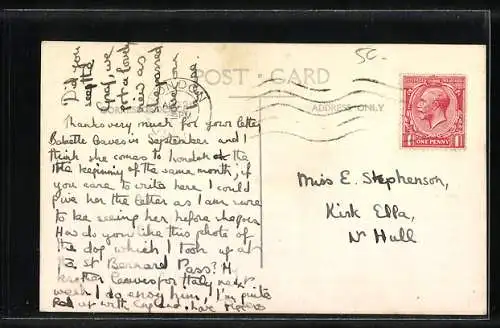 Did you
see the
Graf, we
got a lovely
view as
it passed
over our
house.
5c.
POST CARD
ADDRESS ONLY
LONDON
ONE PENNY
Thanks very much for your letter
Babette leaves in September and I
think she comes to London at the
the beginning of the same month, if
you care to write here I could
give her the letter as I am sure
to be seeing her before she goes
How do you like this photo of
the dog which I took up at
the St Bernard Pass? My
brother leaves for Italy next
week I do envy him, I'm quite
fed up with England. have
Miss E. Stephenson,
Kirk Ella,
Nr Hull